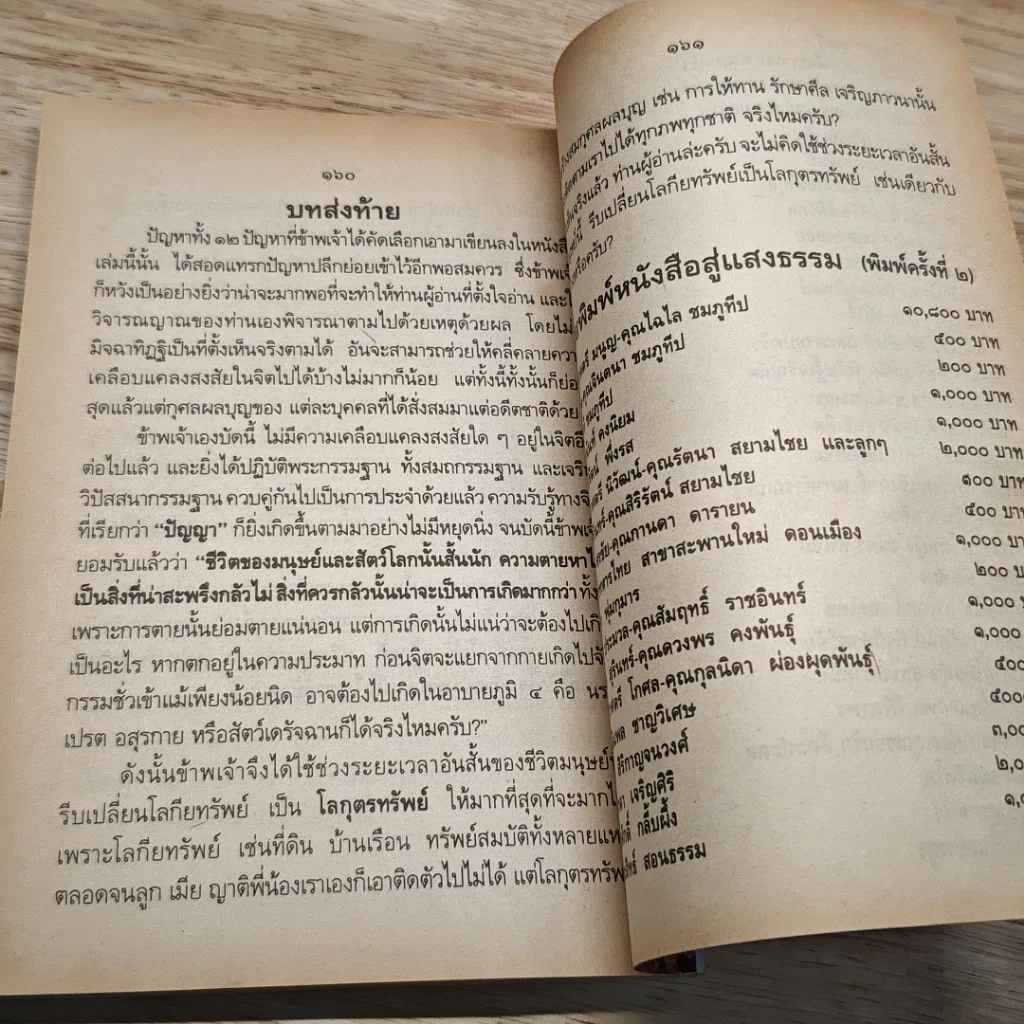 ๑๖๐
บทส่งท้าย
ปัญหาทั้ง ๑๒ ปัญหาที่ข้าพเจ้าได้คัดเลือกเอามาเขียนลงในหนังสือ
เล่มนี้นั้น ได้สอดแทรกปัญหาปลีกย่อยเข้าไว้อีกพอสมควร ซึ่งข้าพเจ้
ก็หวังเป็นอย่างยิ่งว่าน่าจะมากพอที่จะทำให้ท่านผู้อ่านที่ตั้งใจอ่าน และใ
วิจารณญาณของท่านเองพิจารณาตามไปด้วยเหตุด้วยผล โดยไม่
มิจฉาทิฏฐิเป็นที่ตั้งเห็นจริงตามได้ อันจะสามารถช่วยให้คลี่คลายควา
เคลือบแคลงสงสัยในจิตไปได้บ้างไม่มากก็น้อย แต่ทั้งนี้ทั้งนั้นก็ย่อ
สุดแล้วแต่กุศลผลบุญของ แต่ละบุคคลที่ได้สั่งสมมาแต่อดีตชาติด้วย
ข้าพเจ้าเองบัดนี้ ไม่มีความเคลือบแคลงสงสัยใด ๆ อยู่ในจิตอี
ต่อไปแล้ว และยิ่งได้ปฏิบัติพระกรรมฐาน ทั้งสมถกรรมฐาน และเจริ
วิปัสสนากรรมฐาน ควบคู่กันไปเป็นการประจำด้วยแล้ว ความรับรู้ทางจิ
ที่เรียกว่า “ปัญญา” ก็ยิ่งเกิดขึ้นตามมาอย่างไม่มีหยุดนิ่ง จนบัดนี้ข้าพเจ้
ยอมรับแล้วว่า “ชีวิตของมนุษย์และสัตว์โลกนั้นสั้นนัก ความตายหาไ
เป็นสิ่งที่น่าสะพรึงกลัวไม่ สิ่งที่ควรกลัวนั้นน่าจะเป็นการเกิดมากกว่า ทั้ง
เพราะการตายนั้นย่อมตายแน่นอน แต่การเกิดนั้นไม่แน่ว่าจะต้องไปเกิ
เป็นอะไร หากตกอยู่ในความประมาท ก่อนจิตจะแยกจากกายเกิดไปจั
กรรมชั่วเข้าแม้เพียงน้อยนิด อาจต้องไปเกิดในอาบายภูมิ ๔ คือ นร
เปรต อสุรกาย หรือสัตว์เดรัจฉานก็ได้จริงไหมครับ?”
ดังนั้นข้าพเจ้าจึงได้ใช้ช่วงระยะเวลาอันสั้นของชีวิตมนุษย์
รีบเปลี่ยนโลกียทรัพย์ เป็น โลกุตรทรัพย์ ให้มากที่สุดที่จะมากไ
เพราะโลกียทรัพย์ เช่นที่ดิน บ้านเรือน ทรัพย์สมบัติทั้งหลายแห
ตลอดจนลูก เมีย ญาติพี่น้องเราเองก็เอาติดตัวไปไม่ได้ แต่โลกุตรทรัพ
๑๖๑
สมกุศลผลบุญ เช่น การให้ทาน รักษาศีล เจริญภาวนานั้น
ติดตามเราไปได้ทุกภพทุกชาติ จริงไหมครับ?
จริงแล้ว ท่านผู้อ่านล่ะครับ จะไม่คิดใช้ช่วงระยะเวลาอันสั้น
นี้ รีบเปลี่ยนโลกียทรัพย์เป็นโลกุตรทรัพย์ เช่นเดียวกับ
หรือครับ?
พิมพ์หนังสือสู่แสงธรรม (พิมพ์ครั้งที่ ๒)
ตรี มนูญ-คุณไฉไล ชมภูทีป ๑๐,๘๐๐ บาท
คุณจินตนา ชมภูทีป ๕๐๐ บาท
ชมภูทีป ๒๐๐ บาท
คงนิยม ๑,๐๐๐ บาท
พึ่งรส ๑,๐๐๐ บาท
ตรี นิวัฒน์-คุณรัตนา สยามไชย และลูกๆ ๒,๐๐๐ บาท
-คุณสิริรัตน์ สยามไชย ๑๐๐ บาท
-คุณกานดา ดารายน ๕๐๐ บาท
ทหารไทย สาขาสะพานใหม่ ดอนเมือง ๑,๐๐๐ บา
พุมกุมาร ๒๐๐ บา
ประมวล-คุณสัมฤทธิ์ ราชอินทร์ ๑,๐๐๐
สุรินทร์-คุณดวงพร คงพันธุ์ ๑,๐๐๐
ตรี โกศล-คุณกุลนิดา ผ่องผุดพันธุ์ ๕๐๐
พล ชาญวิเศษ ๕๐๐
สิริกาญจนวงศ์ ๓,๐๐
เจริญศิริ ๒,๐
กลิ้บผึ้ง ๑,
สอนธรรม